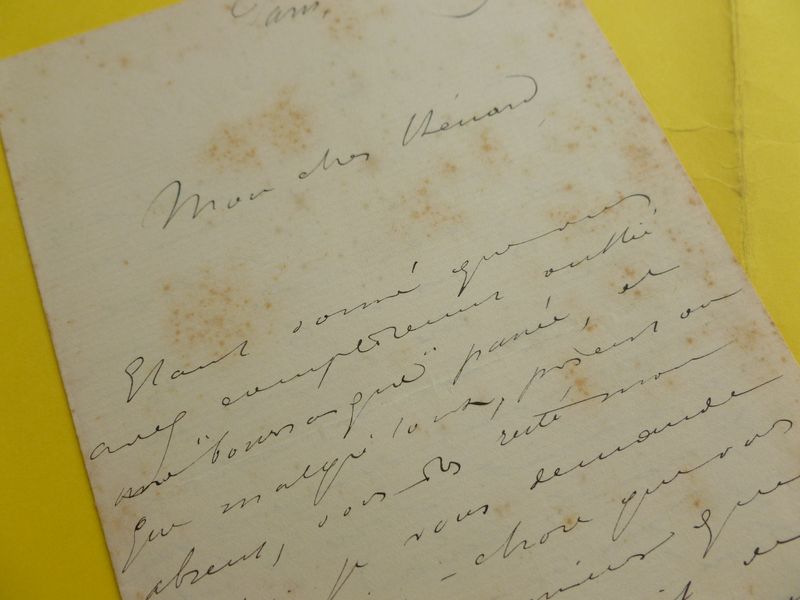 Paris,
Mon cher Hénard
Etant donné que vous
avez complètement oublié
ma "bourrasque" passée, et
que malgré tout, présent ou
absent, vous êtes resté mon
je vous demande
-chose que vous
que
et